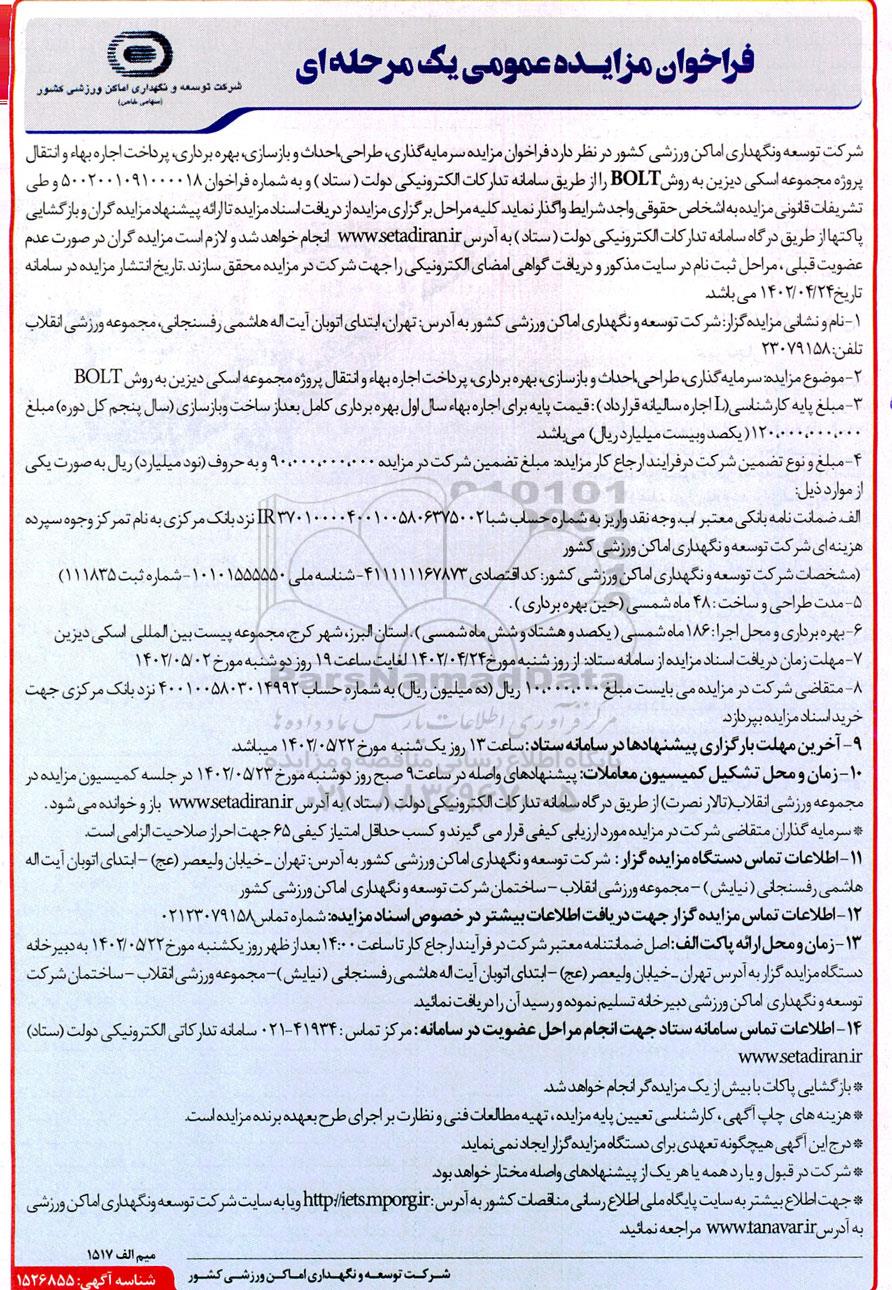 فراخوان مزایده عمومی یک مرحله ای
شرکت توسعه و نگهداری اماکن ورزشی کشور
(سهامی خاص)
شرکت توسعه ونگهداری اماکن ورزشی کشور در نظر دارد فراخوان مزایده سرمایه گذاری، طراحی،احداث و بازسازی، بهره برداری، پرداخت اجاره بهاء و انتقال
پروژه مجموعه اسکی دیزین به روش BOLT را از طریق سامانه تدارکات الکترونیکی دولت ( ستاد ) و به شماره فراخوان ۵۰۰۲۰۰۱۰۹۱۰۰۰۰۱۸ و طی
تشریفات قانونی مزایده به اشخاص حقوقی واجد شرایط واگذار نماید. کلیه مراحل برگزاری مزایده از دریافت اسناد مزایده تا ارائه پیشنهاد مزایده گران و بازگشایی
پاکتها از طریق درگاه سامانه تدارکات الکترونیکی دولت ( ستاد ) به آدرس www.setadiran.ir انجام خواهد شد و لازم است مزایده گران در صورت عدم
عضویت قبلی ، مراحل ثبت نام در سایت مذکور و دریافت گواهی امضای الکترونیکی را جهت شرکت در مزایده محقق سازند .تاریخ انتشار مزایده در سامانه
تاریخ ۱۴۰۲/۰۴/۲۴ می باشد.
۱-نام و نشانی مزایده گزار: شرکت توسعه و نگهداری اماکن ورزشی کشور به آدرس: تهران، ابتدای اتوبان آیت اله هاشمی رفسنجانی، مجموعه ورزشی انقلاب
تلفن: ۲۳۰۷۹۱۵۸
۲-موضوع مزایده: سرمایه گذاری، طراحی،احداث و بازسازی، بهره برداری، پرداخت اجاره بهاء و انتقال پروژه مجموعه اسکی دیزین به روش BOLT
۳-مبلغ پایه کارشناسی(L اجاره سالیانه قرارداد) : قیمت پایه برای اجاره بهاء سال اول بهره برداری کامل بعداز ساخت وبازسازی (سال پنجم کل دوره) مبلغ
۱۲۰،۰۰۰،۰۰۰،۰۰۰( یکصد وبیست میلیارد ریال) می‌باشد.
۴-مبلغ و نوع تضمین شرکت درفرایند ارجاع کار مزایده: مبلغ تضمین شرکت در مزایده ۹۰،۰۰۰،۰۰۰،۰۰۰ و به حروف (نود میلیارد) ریال به صورت یکی
از موارد ذیل:
الف. ضمانت نامه بانکی معتبر /ب. وجه نقد واریز به شماره حساب شبا IR۳۷۰۱۰۰۰۰۴۰۰۱۰۰۵۸۰۶۳۷۵۰۰۲ نزد بانک مرکزی به نام تمرکز وجوه سپرده
هزینه ای شرکت توسعه و نگهداری اماکن ورزشی کشور
(مشخصات شرکت توسعه و نگهداری اماکن ورزشی کشور: کد اقتصادی ۴۱۱۱۱۱۱۶۷۸۷۳- شناسه ملی ۱۰۱۰۱۵۵۵۵۵۰ -شماره ثبت ۱۱۱۸۳۵)
۵-مدت طراحی و ساخت : ۴۸ ماه شمسی (حین بهره برداری ) .
۶-بهره برداری و محل اجرا : ۱۸۶ ماه شمسی ( یکصد و هشتاد و شش ماه شمسی ) . استان البرز، شهر کرج، مجموعه پیست بین المللی اسکی دیزین
۷-مهلت زمان دریافت اسناد مزایده از سامانه ستاد: از روز شنبه مورخ ۱۴۰۲/۰۴/۲۴ لغایت ساعت ۱۹ روز دو شنبه مورخ ۱۴۰۲/۰۵/۰۲
۸-متقاضی شرکت در مزایده می بایست مبلغ ۱۰،۰۰۰،۰۰۰ ریال (ده میلیون ریال) به شماره حساب ۴۰۰۱۰۰۵۸۰۳۰۱۴۹۹۲ نزد بانک مرکزی جهت
خرید اسناد مزایده بپردازد.
۹- آخرین مهلت بارگزاری پیشنهادها در سامانه ستاد: ساعت ۱۳ روز یک شنبه مورخ ۱۴۰۲/۰۵/۲۲ میباشد.
۱۰-زمان و محل تشکیل کمیسیون معاملات: پیشنهادهای واصله در ساعت ۹ صبح روز دوشنبه مورخ ۱۴۰۲/۰۵/۲۳ در جلسه کمیسیون مزایده در
مجموعه ورزشی انقلاب(تالار نصرت) از طریق درگاه سامانه تدارکات الکترونیکی دولت ( ستاد ) به آدرس www.setadiran.ir باز و خوانده می شود .
* سرمایه گذاران متقاضی شرکت در مزایده مورد ارزیابی کیفی قرار می گیرند و کسب حداقل امتیاز کیفی ۶۵ جهت احراز صلاحیت الزامی است.
۱۱-اطلاعات تماس دستگاه مزایده گزار : شرکت توسعه و نگهداری اماکن ورزشی کشور به آدرس: تهران -خیابان ولیعصر (عج) -ابتدای اتوبان آیت اله
هاشمی رفسنجانی ( نیایش ) -مجموعه ورزشی انقلاب -ساختمان شرکت توسعه و نگهداری اماکن ورزشی کشور
۱۲-اطلاعات تماس مزایده گزار جهت دریافت اطلاعات بیشتر در خصوص اسناد مزایده: شماره تماس ۰۲۱۲۳۰۷۹۱۵۸
۱۳-زمان و محل ارائه پاکت الف: اصل ضمانتنامه معتبر شرکت در فرآیند ارجاع کار تا ساعت ۱۴:۰۰ بعد از ظهر روز یکشنبه مورخ ۱۴۰۲/۰۵/۲۲ به دبیرخانه
دستگاه مزایده گزار به آدرس تهران -خیابان ولیعصر (عج) -ابتدای اتوبان آیت اله هاشمی رفسنجانی ( نیایش ) -مجموعه ورزشی انقلاب - ساختمان شرکت
توسعه و نگهداری اماکن ورزشی دبیرخانه تسلیم نموده و رسید آن را دریافت نمائید.
۱۴-اطلاعات تماس سامانه ستاد جهت انجام مراحل عضویت در سامانه : مرکز تماس : ۴۱۹۳۴-۰۲۱ سامانه تدارکاتی الکترونیکی دولت (ستاد)
www.setadiran.ir
* بازگشایی پاکات با بیش از یک مزایده گر انجام خواهد شد.
* هزینه های چاپ آگهی ، کارشناسی تعیین پایه مزایده ، تهیه مطالعات فنی و نظارت بر اجرای طرح بعهده برنده مزایده است.
* درج این آگهی هیچگونه تعهدی برای دستگاه مزایده گزار ایجاد نمی نماید.
* شرکت در قبول و یا رد همه یا هر یک از پیشنهادهای واصله مختار خواهد بود.
* جهت اطلاع بیشتر به سایت پایگاه ملی اطلاع رسانی مناقصات کشور به آدرس : http://iets.mporg.ir و یا به سایت شرکت توسعه ونگهداری اماکن ورزشی
به آدرس www.tanavar.ir مراجعه نمائید.
میم الف ۱۵۱۷
شرکت توسعه و نگهداری اماکن ورزشی کشور
شناسه آگهی: ۱۵۲۶۸۵۵
ParsNamadData
مرکز فرآوری اطلاعات پارس نماد داده ها
پایگاه اطلاع رسانی مناقصه و مزایده
۰۲۱-۸۸۳۴۹۶۷۰-۵